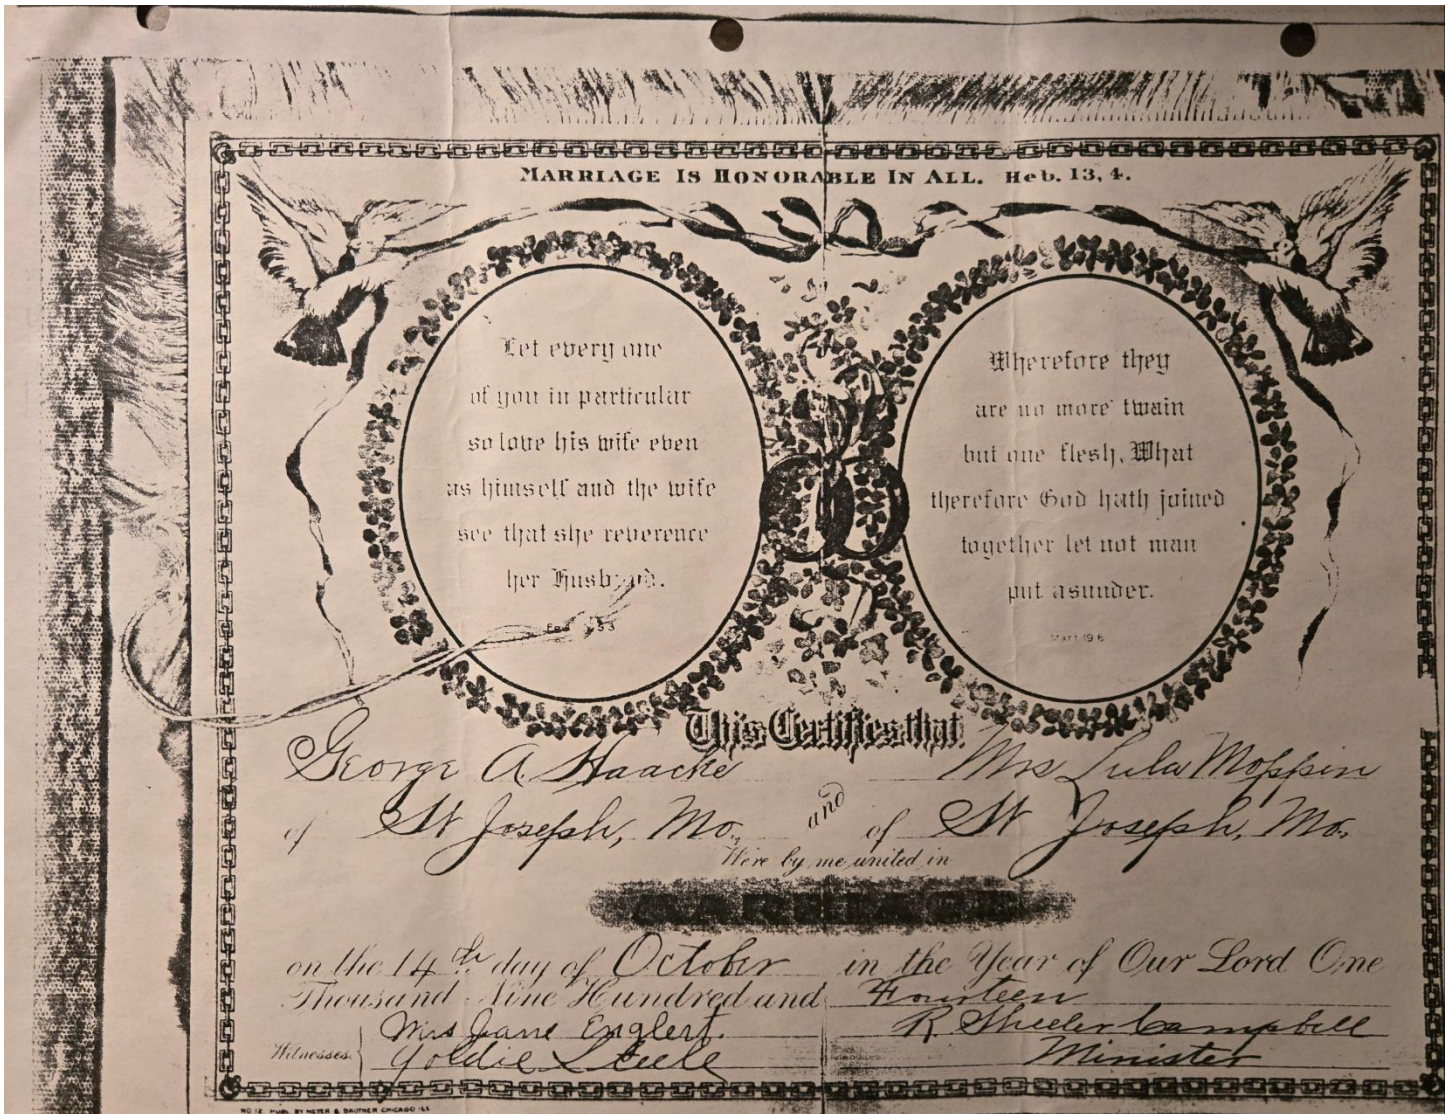 MARRIAGE IS HONORABLE IN ALL. Heb. 13, 4.
Let every one
of you in particular
so love his wife even
as himself and the wife
see that she reverence
her Husband.
Wherefore they
are no more twain
but one flesh. What
therefore God hath joined
together let not man
put asunder.
Matt 19 6
This Certifies that
George A. Haacke and Mrs Lula Moppin
of St Joseph, Mo. of St Joseph, Mo.
Were by me united in
MARRIAGE
on the 14th day of October in the Year of Our Lord One
Thousand Nine Hundred and Fourteen
Mrs Jane Englert. R Sheeler Campbell
Witnesses Goldie Steele Minister
PUBL. BY MEYER & BROTHER CHICAGO